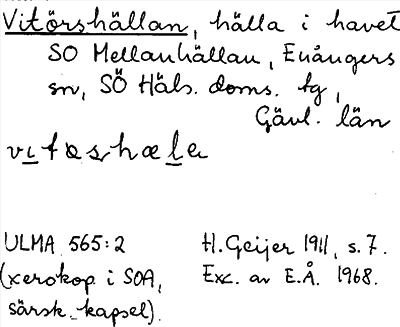 Vitörshällan, hälla i havet
SO Mellanhällan, Enångers
sn, SÖ Häls. doms. tg,
Gävl. län
ULMA 565:2
H. Geijer 1911, s. 7.
(xerokop i SOA,
Exc. av E.Å. 1968.
särsk. kapsel).